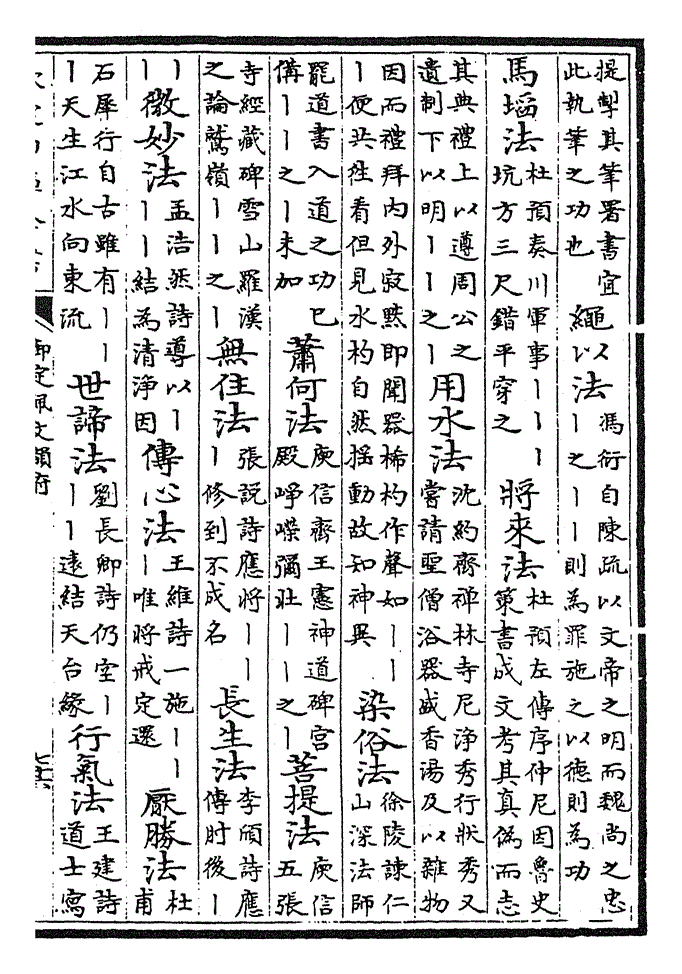 提掣其筆署書宜
此執筆之功也
繩以法
馮衍自陳疏以文帝之明而魏尚之忠
丨之丨丨則為罪施之以德則為功
馬墖法
杜預奏川軍事丨丨丨
坑方三尺錯平穿之
將來法
杜預左傳序仲尼因魯史
策書成文考其真偽而志
其典禮上以遵周公之
遺制下以明丨丨之丨
用水法
沈約齊禅林寺尼淨秀行狀秀又
嘗請聖僧浴器盛香湯及以雜物
因而禮拜内外寂黙即聞器桸杓作聲如丨丨
丨便共徃看但見水杓自然揺動故知神異
染俗法
徐陵諫仁
山深法師
罷道書入道之功已
備丨丨之丨未加
蕭何法
庾信齊王憲神道碑宮
殿崢嶸彌壯丨丨之丨
菩提法
庾信
五張
寺經藏碑雪山羅漢
之論鷲嶺丨丨之丨
無住法
張說詩應將丨丨
丨修到不成名
長生法
李頎詩應
傳肘後丨
丨
丨
微妙法
孟浩然詩導以丨
丨丨結為清淨因
傳心法
王維詩一施丨丨
丨唯將戒定還
厭勝法
杜
甫
石犀行自古雖有丨丨
丨天生江水向東流
世諦法
劉長卿詩仍空丨
丨丨逺結天台緣
行氣法
王建詩
道士寫
御定佩文韻府